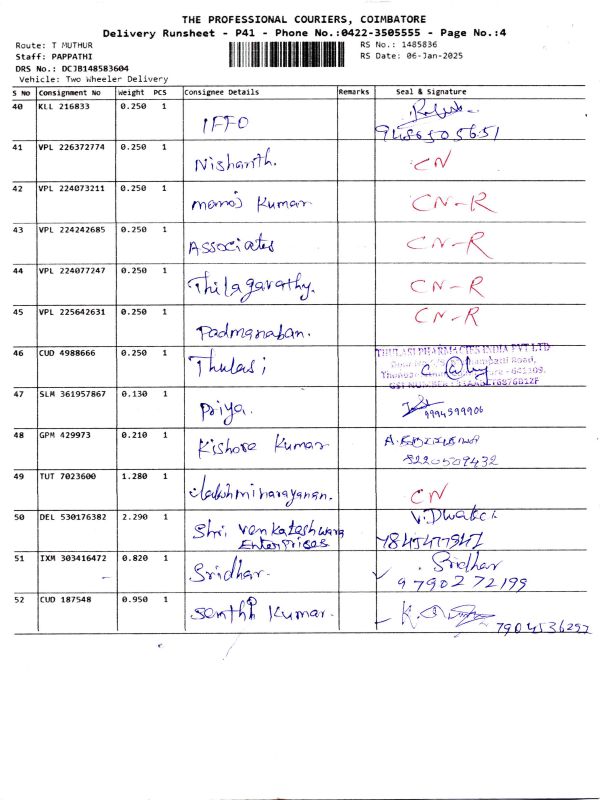 THE PROFESSIONAL COURIERS, COIMBATORE
Delivery Runsheet - P41 - Phone No.:0422-3505555 - Page No.:4
Route: T MUTHUR RS No.: 1485836
Staff: PAPPATHI RS Date: 06-Jan-2025
DRS No.: DCJB148583604
Vehicle: Two Wheeler Delivery
S No Consignment No Weight PCS Consignee Details Remarks Seal & Signature
40 KLL 216833 0.250 1 IFFO
9486505651
41 VPL 226372774 0.250 1 Nishanth. CN
42 VPL 224073211 0.250 1 manoj Kumar CN-R
43 VPL 224242685 0.250 1 Associates CN-R
44 VPL 224077247 0.250 1 Thilagavathy. CN-R
45 VPL 225642631 0.250 1 Padmanaban. CN-R
46 CUD 4988666 0.250 1 Thulasi THULASI PHARMACIES INDIA PVT LTD
Road,
- 641109.
GST NUMBER
47 SLM 361957867 0.130 1 Priya. 9994599906
48 GPM 429973 0.210 1 Kishore Kumar
8220509432
49 TUT 7023600 1.280 1 Lakshminarayanan. CN
50 DEL 530176382 2.290 1 Shri. Venkateshwara Enterprises
51 IXM 303416472 0.820 1 Sridhar. Sridhar
9790272199
52 CUD 187548 0.950 1 Senthil Kumar.
7904536297